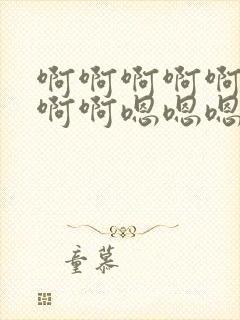 啊啊啊啊啊
啊啊嗯嗯嗯
童慕